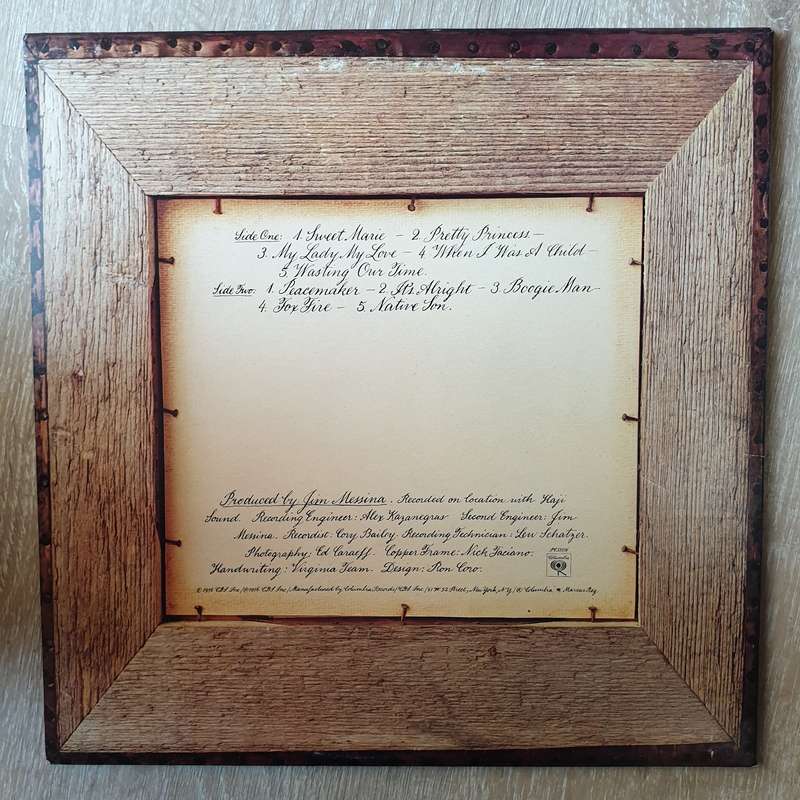 Side One: 1. Sweet Marie – 2. Pretty Princess –
3. My Lady, My Love – 4. When I Was A Child –
5. Wasting Our Time.
Side Two: 1. Peacemaker – 2. It's Alright – 3. Boogie Man –
4. Fox Fire – 5. Native Son.
Produced by Jim Messina. Recorded on location with Haji
Sound. Recording Engineer: Alex Kazanegras Second Engineer: Jim
Messina. Recordist: Cory Bailey Recording Technician: Lou Schatzer.
Photography: Ed Caraeff. Copper Frame: Nick Faciano.
Handwriting: Virginia Team. Design: Ron Coro.
Columbia
© 1976 CBS Inc./℗ 1976 CBS Inc./Manufactured by Columbia Records/CBS Inc./51 W. 52 Street, New York, N.Y./® Columbia Marcas Reg.